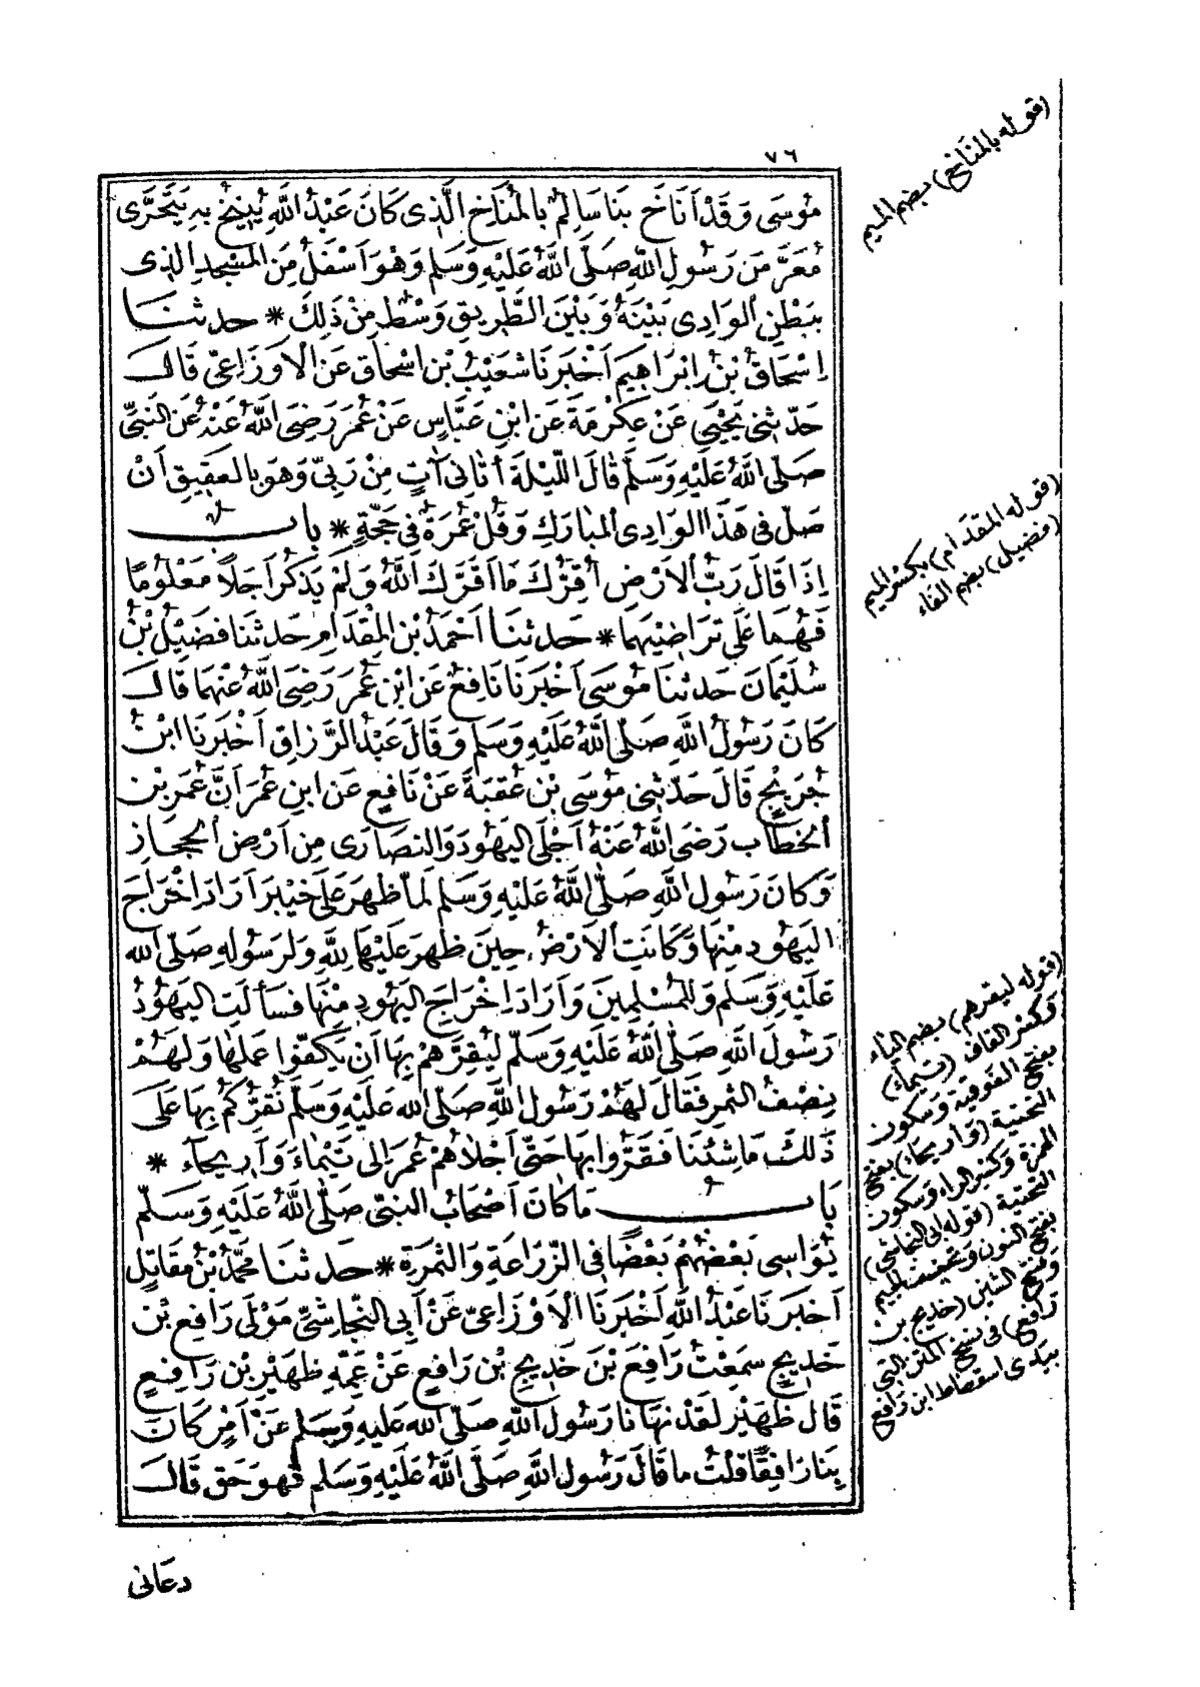 ٧٦
مُوسَى وَقَدْ اَنَاخَ بِنَا سَالِمٌ بِالْمُنَاخِ الَّذِى كَانَ عَبْدُ اللَّهِ يُنِيخُ بِهِ يَتَحَرَّى
مُعَرَّسَ رَسُولِ اللَّهِ صَلَّى اللَّهُ عَلَيْهِ وَسَلَّمَ وَهُوَ اَسْفَلُ مِنَ المَسْجِدِ الَّذِى
بِبَطْنِ الْوَادِى بَيْنَهُ وَبَيْنَ الطَّرِيقِ وَسْطٌ مِنْ ذَلِكَ * حدثنا
اِسْحَاقُ بْنُ اِبْرَاهِيمَ اَخْبَرَنَا شُعَيْبُ بْنُ اِسْحَاقَ عَنِ الْاَوْزَاعِىِّ قَالَ
حَدَّثَنِى يَحْيَى عَنْ عِكْرِمَةَ عَنِ ابْنِ عَبَّاسٍ عَنْ عُمَرَ رَضِىَ اللَّهُ عَنْهُ عَنِ النَّبِىِّ
صَلَّى اللَّهُ عَلَيْهِ وَسَلَّمَ قَالَ اللَّيْلَةَ أَتَانِى آتٍ مِنْ رَبِّى وَهُوَ بِالْعَقِيقِ اَنْ
صَلِّ فِى هَذَا الْوَادِى الْمُبَارَكِ وَقُلْ عُمْرَةٌ فِى حَجَّةٍ * باب
اِذَا قَالَ رَبُّ الْاَرْضِ أُقِرُّكَ مَا اَقَرَّكَ اللَّهُ وَلَمْ يَذْكُرْ اَجَلاً مَعْلُومًا
فَهُمَا عَلَى تَرَاضِيهِمَا * حَدثنا اَحْمَدُ بْنُ الْمِقْدَامِ حَدثنا فُضَيْلُ بْنُ
سُلَيْمَانَ حَدثنا مُوسَى اَخْبَرَنَا نَافِعٌ عَنِ ابْنِ عُمَرَ رَضِىَ اللَّهُ عَنْهُمَا قَالَ
كَانَ رَسُولُ اللَّهِ صَلَّى اللَّهُ عَلَيْهِ وَسَلَّمَ وَقَالَ عَبْدُ الرَّزَاقِ اَخْبَرَنَا ابْنُ
جُرَيْجٍ قَالَ حَدَّثَنِى مُوسَى بْنُ عُقْبَةَ عَنْ نَافِعٍ عَنِ ابْنِ عُمَرَ اَنَّ عُمَرَ بْنَ
الْخَطَّابِ رَضِىَ اللَّهُ عَنْهُ اَجْلَى الْيَهُودَ وَالنَّصَارَى مِنْ اَرْضِ الْحِجَازِ
وَكَانَ رَسُولُ اللَّهِ صَلَّى اللَّهُ عَلَيْهِ وَسَلَّمَ لَمَّا ظَهَرَ عَلَى خَيْبَرَ اَرَادَ اِخْرَاجَ
الْيَهُودِ مِنْهَا وَكَانَتِ الْاَرْضُ حِينَ ظَهَرَ عَلَيْهَا لِلَّهِ وَلِرَسُولِهِ صَلَّى الله
عَلَيْهِ وَسَلَّمَ وَلِلْمُسْلِمِينَ وَاَرَادَ اِخْرَاجَ الْيَهُودِ مِنْهَا فَسَأَلَتِ الْيَهُودُ
رَسُولَ اللَّهِ صَلَّى اللَّهُ عَلَيْهِ وَسَلَّمَ لِيُقِرَّهُمْ بِهَا اَنْ يَكْفُوا عَمَلَهَا وَلَهُمْ
نِصْفُ الثَّمَرِ فَقَالَ لَهُمْ رَسُولُ اللَّهِ صَلَّى الله عَلَيْهِ وَسَلَّمَ نُقِرُّكُمْ بِهَا عَلَى
ذَلِكَ مَا شِئْنَا فَقَرُّوا بِهَا حَتَّى اَجْلاَهُمْ عُمَرُ اِلَى تَيْمَاءَ وَاَرِيحَآءَ *
باب مَا كَانَ اَصْحَابُ النَّبِىِّ صَلَّى اللَّهُ عَلَيْهِ وَسَلَّمَ
يُوَاسِى بَعْضُهُمْ بَعْضًا فِى الزِّرَاعَةِ وَالثَّمَرَةِ * حَدثنا مُحَمَّدُ بْنُ مُقَاتِلٍ
اَخْبَرَنَا عَبْدُ اللَّهِ اَخْبَرَنَا الْاَوْزَاعِىُّ عَنْ اَبِى النَّجَاشِىِّ مَوْلَى رَافِعِ بْنِ
خَدِيجٍ سَمِعْتُ رَافِعَ بْنَ خَدِيجِ بْنِ رَافِعٍ عَنْ عَمِّهِ ظُهَيْرِ بْنِ رَافِعٍ
قَالَ ظُهَيْرٌ لَقَدْ نَهَانَا رَسُولُ اللَّهِ صَلَّى الله عَلَيهِ وَسَلَّمَ عَنْ اَمْرٍ كَانَ
بِنَا رَافِقًا قُلْتُ مَا قَالَ رَسُولُ اللَّهِ صَلَّى اللَّهُ عَلَيْهِ وَسَلَّمَ فَهُوَ حَقٌّ قَالَ
دعانى
(قوله بالمنَاخ) بضم الميم
(قوله المقدَام) بكسر الميم
(فضيل) بضم الفاء
(قوله ليقرهم) بضم الياء
وكسر القاف (تيماءَ)
بفتح الفوقية وسكون
التحتية (وأريحاءَ) بفتح
الهمزة وكسر الراء وسكون
التحتية (قوله ابى النجاشى)
بفتح النون وتخفيف الجيم
وفتح الشين (خديج بن
رافع) فى نسخ المتن التى
بيدى اسقاط ابن رافع